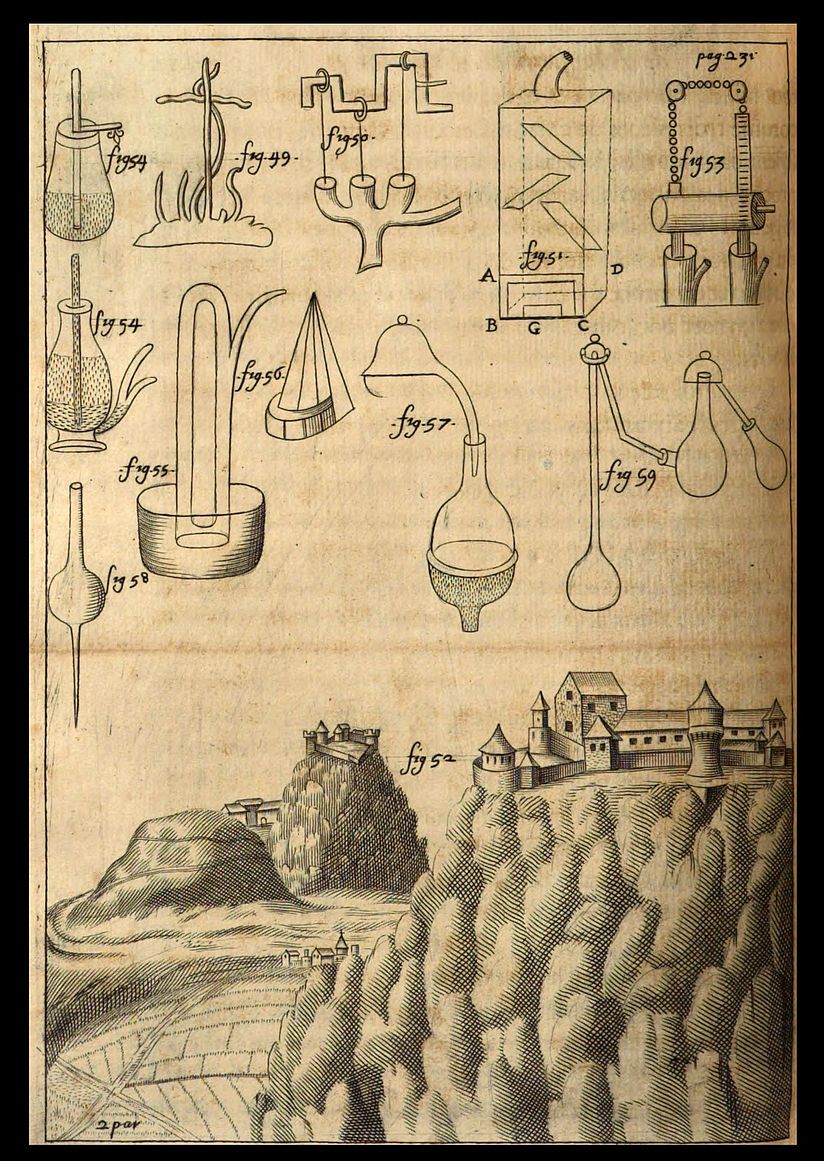 pag. 231
fig 54
fig. 49.
fig 50
fig 53
fig. 51.
A
D
B
G
C
fig 54
fig. 56.
fig. 57.
fig. 55.
fig 59
fig 58
fig 52
2 par